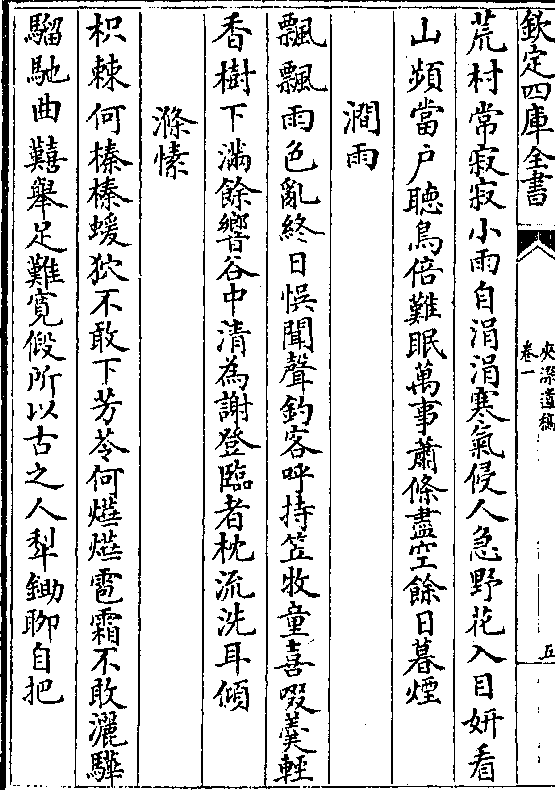 欽定四庫全書
夾漈遺稿
卷一
五
荒村常寂寂小雨自涓涓寒氣侵人急野花入目妍看
山頻當户聴鳥倍難眠萬事蕭條盡空餘日暮煙
澗雨
飄飄雨色亂終日悞聞聲釣客呼持笠牧童喜啜羮輕
香樹下滿餘響谷中清為謝登臨者枕流洗耳傾
滌愫
枳棘何榛榛蝯狖不敢下芳苓何爗爗雹霜不敢灑驊
騮馳曲囏舉足難寛假所以古之人犁鋤聊自把